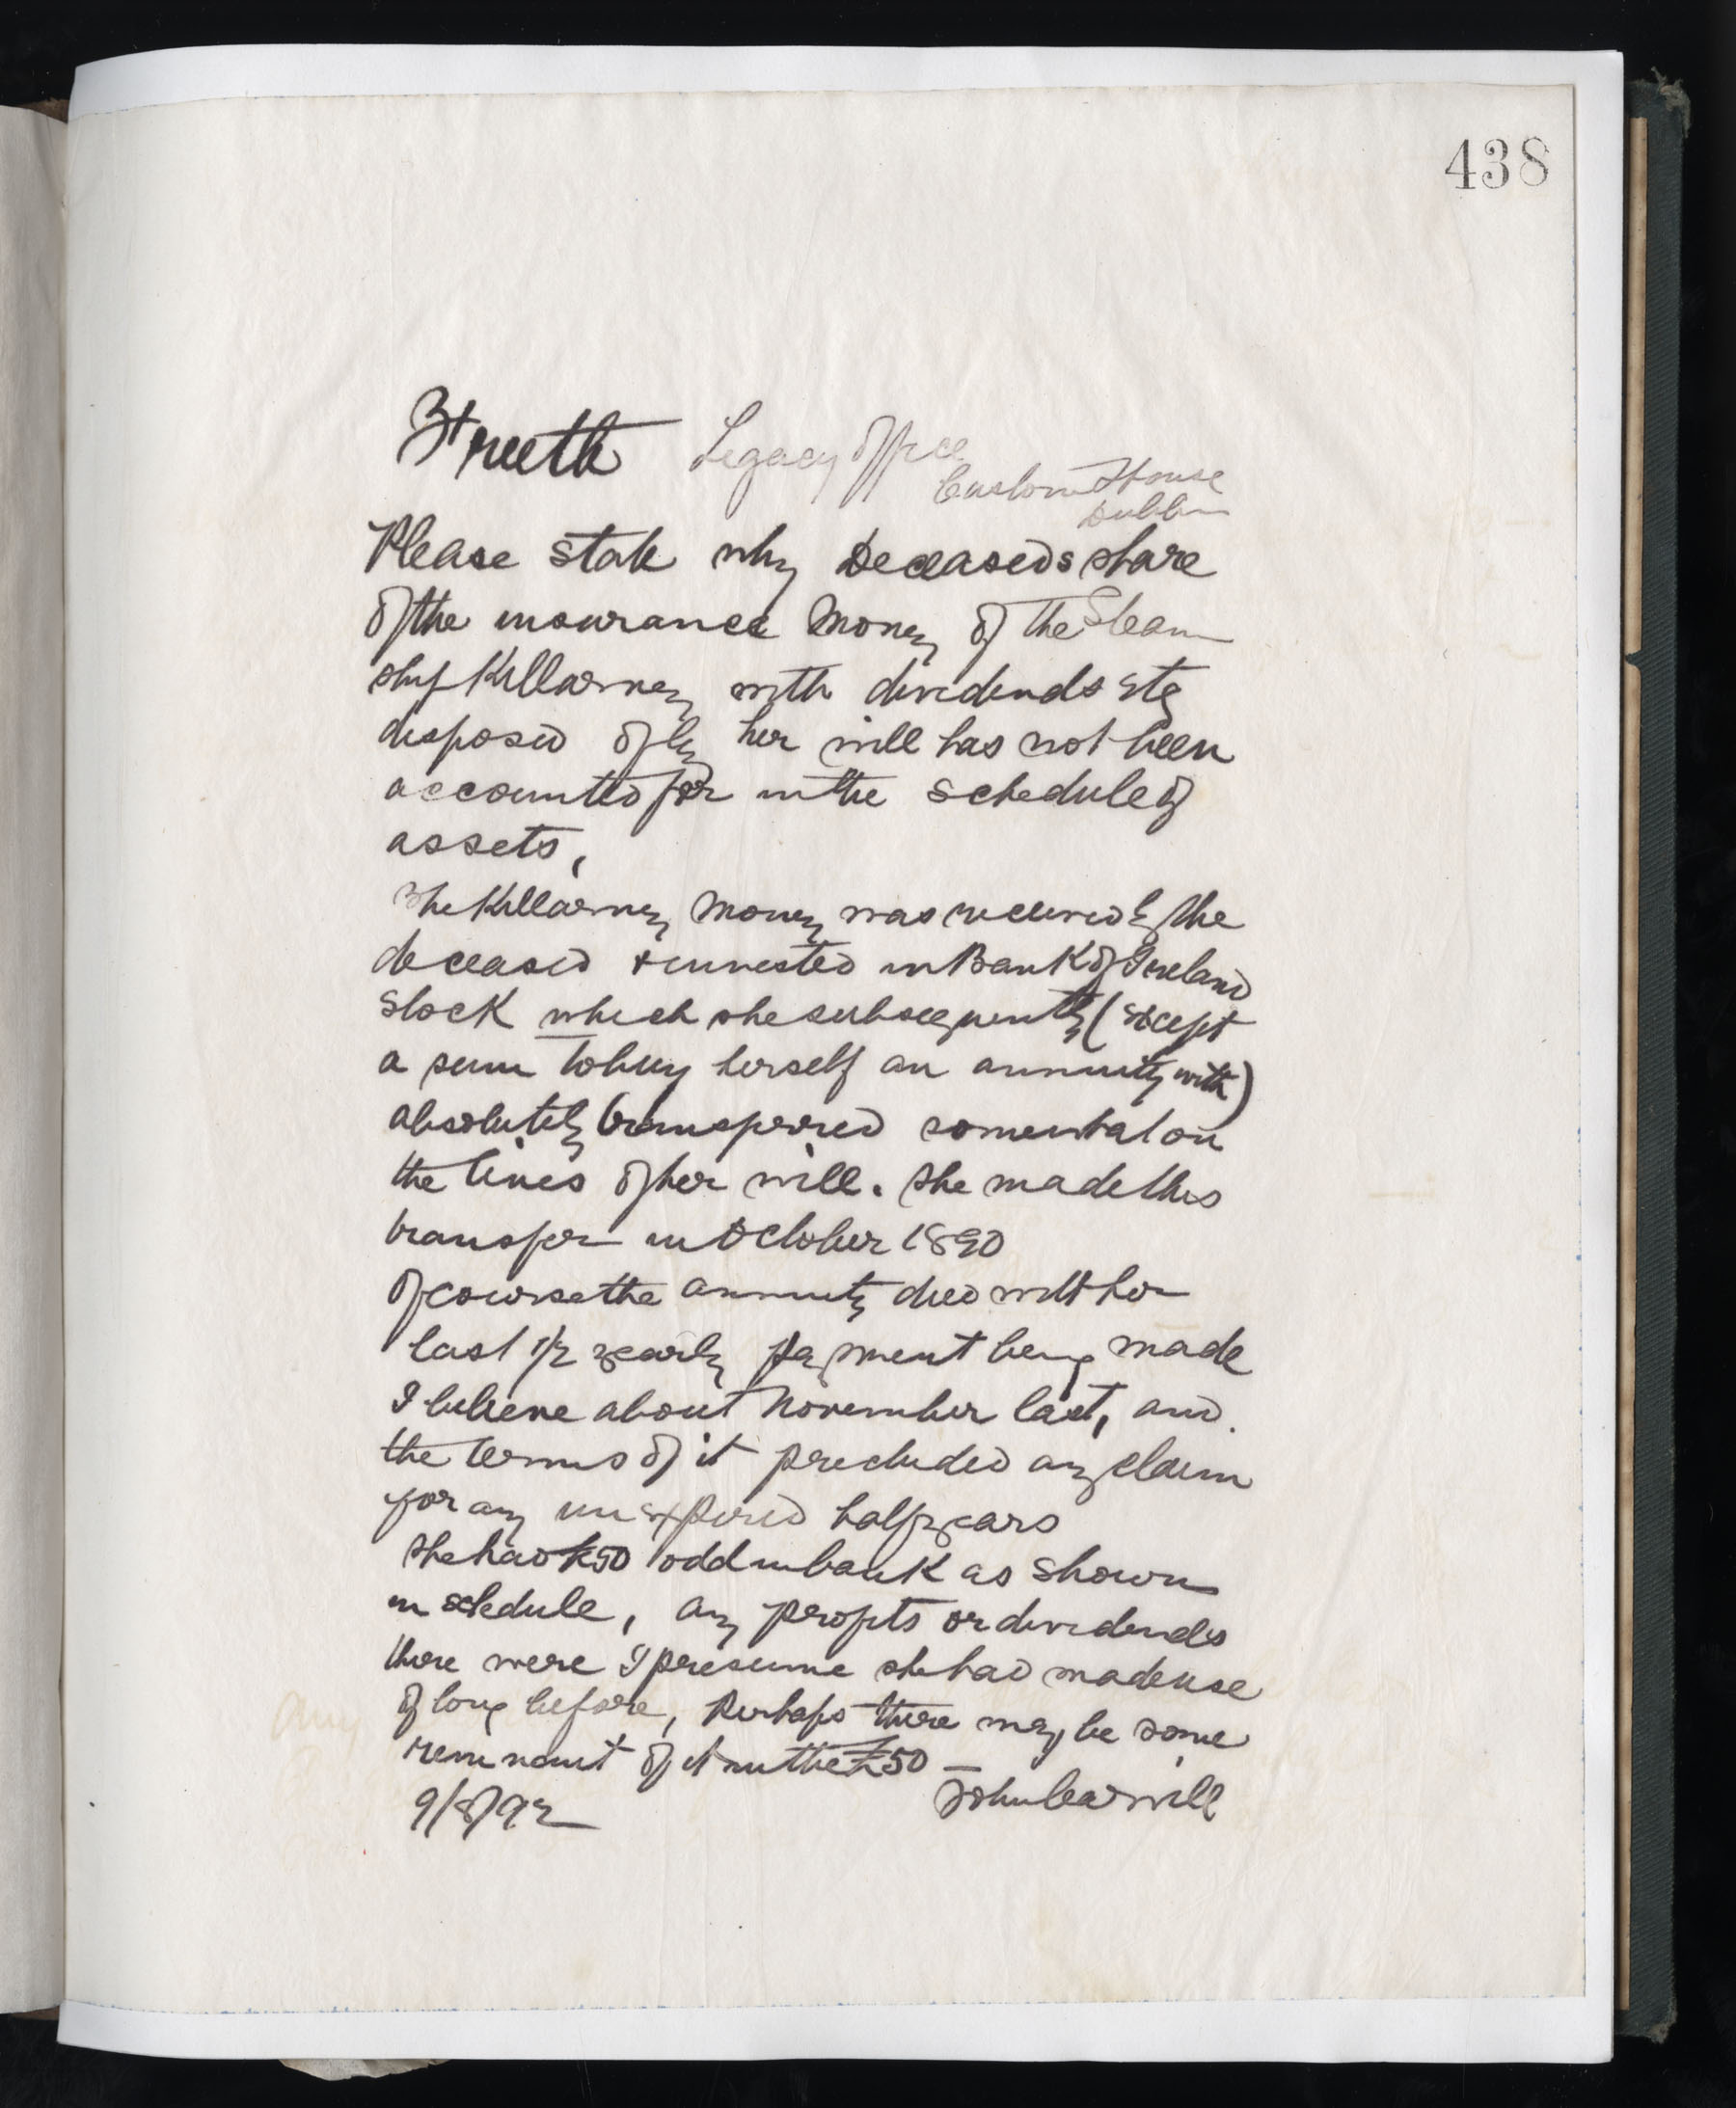 438
Legacy Office
Custom House
Dublin
Please state why Deceaseds share
of the insurance money of the Steam
ship Killarney with dividends etc
disposed of by her will has not been
accounted for in the schedule of
assets,
The Killarney money was received by the
deceased & invested in Bank of Ireland
Stock which she subsequently (except
a sum to buy herself an annuity with)
absolutely transferred somewhat on
the lines of her will. She made this
transfer in October 1890
Of course the annuity died with her
last 1/2 yearly payment being made
I believe about November last, and
the terms of it precluded any claim
for any unexpired half years
She had £50 odd in bank as shown
in schedule, any profits or dividends
there were I presume she had made use
of long before, Perhaps there may be some
remnant of it in the £50 —
9/8/92 John Carvill